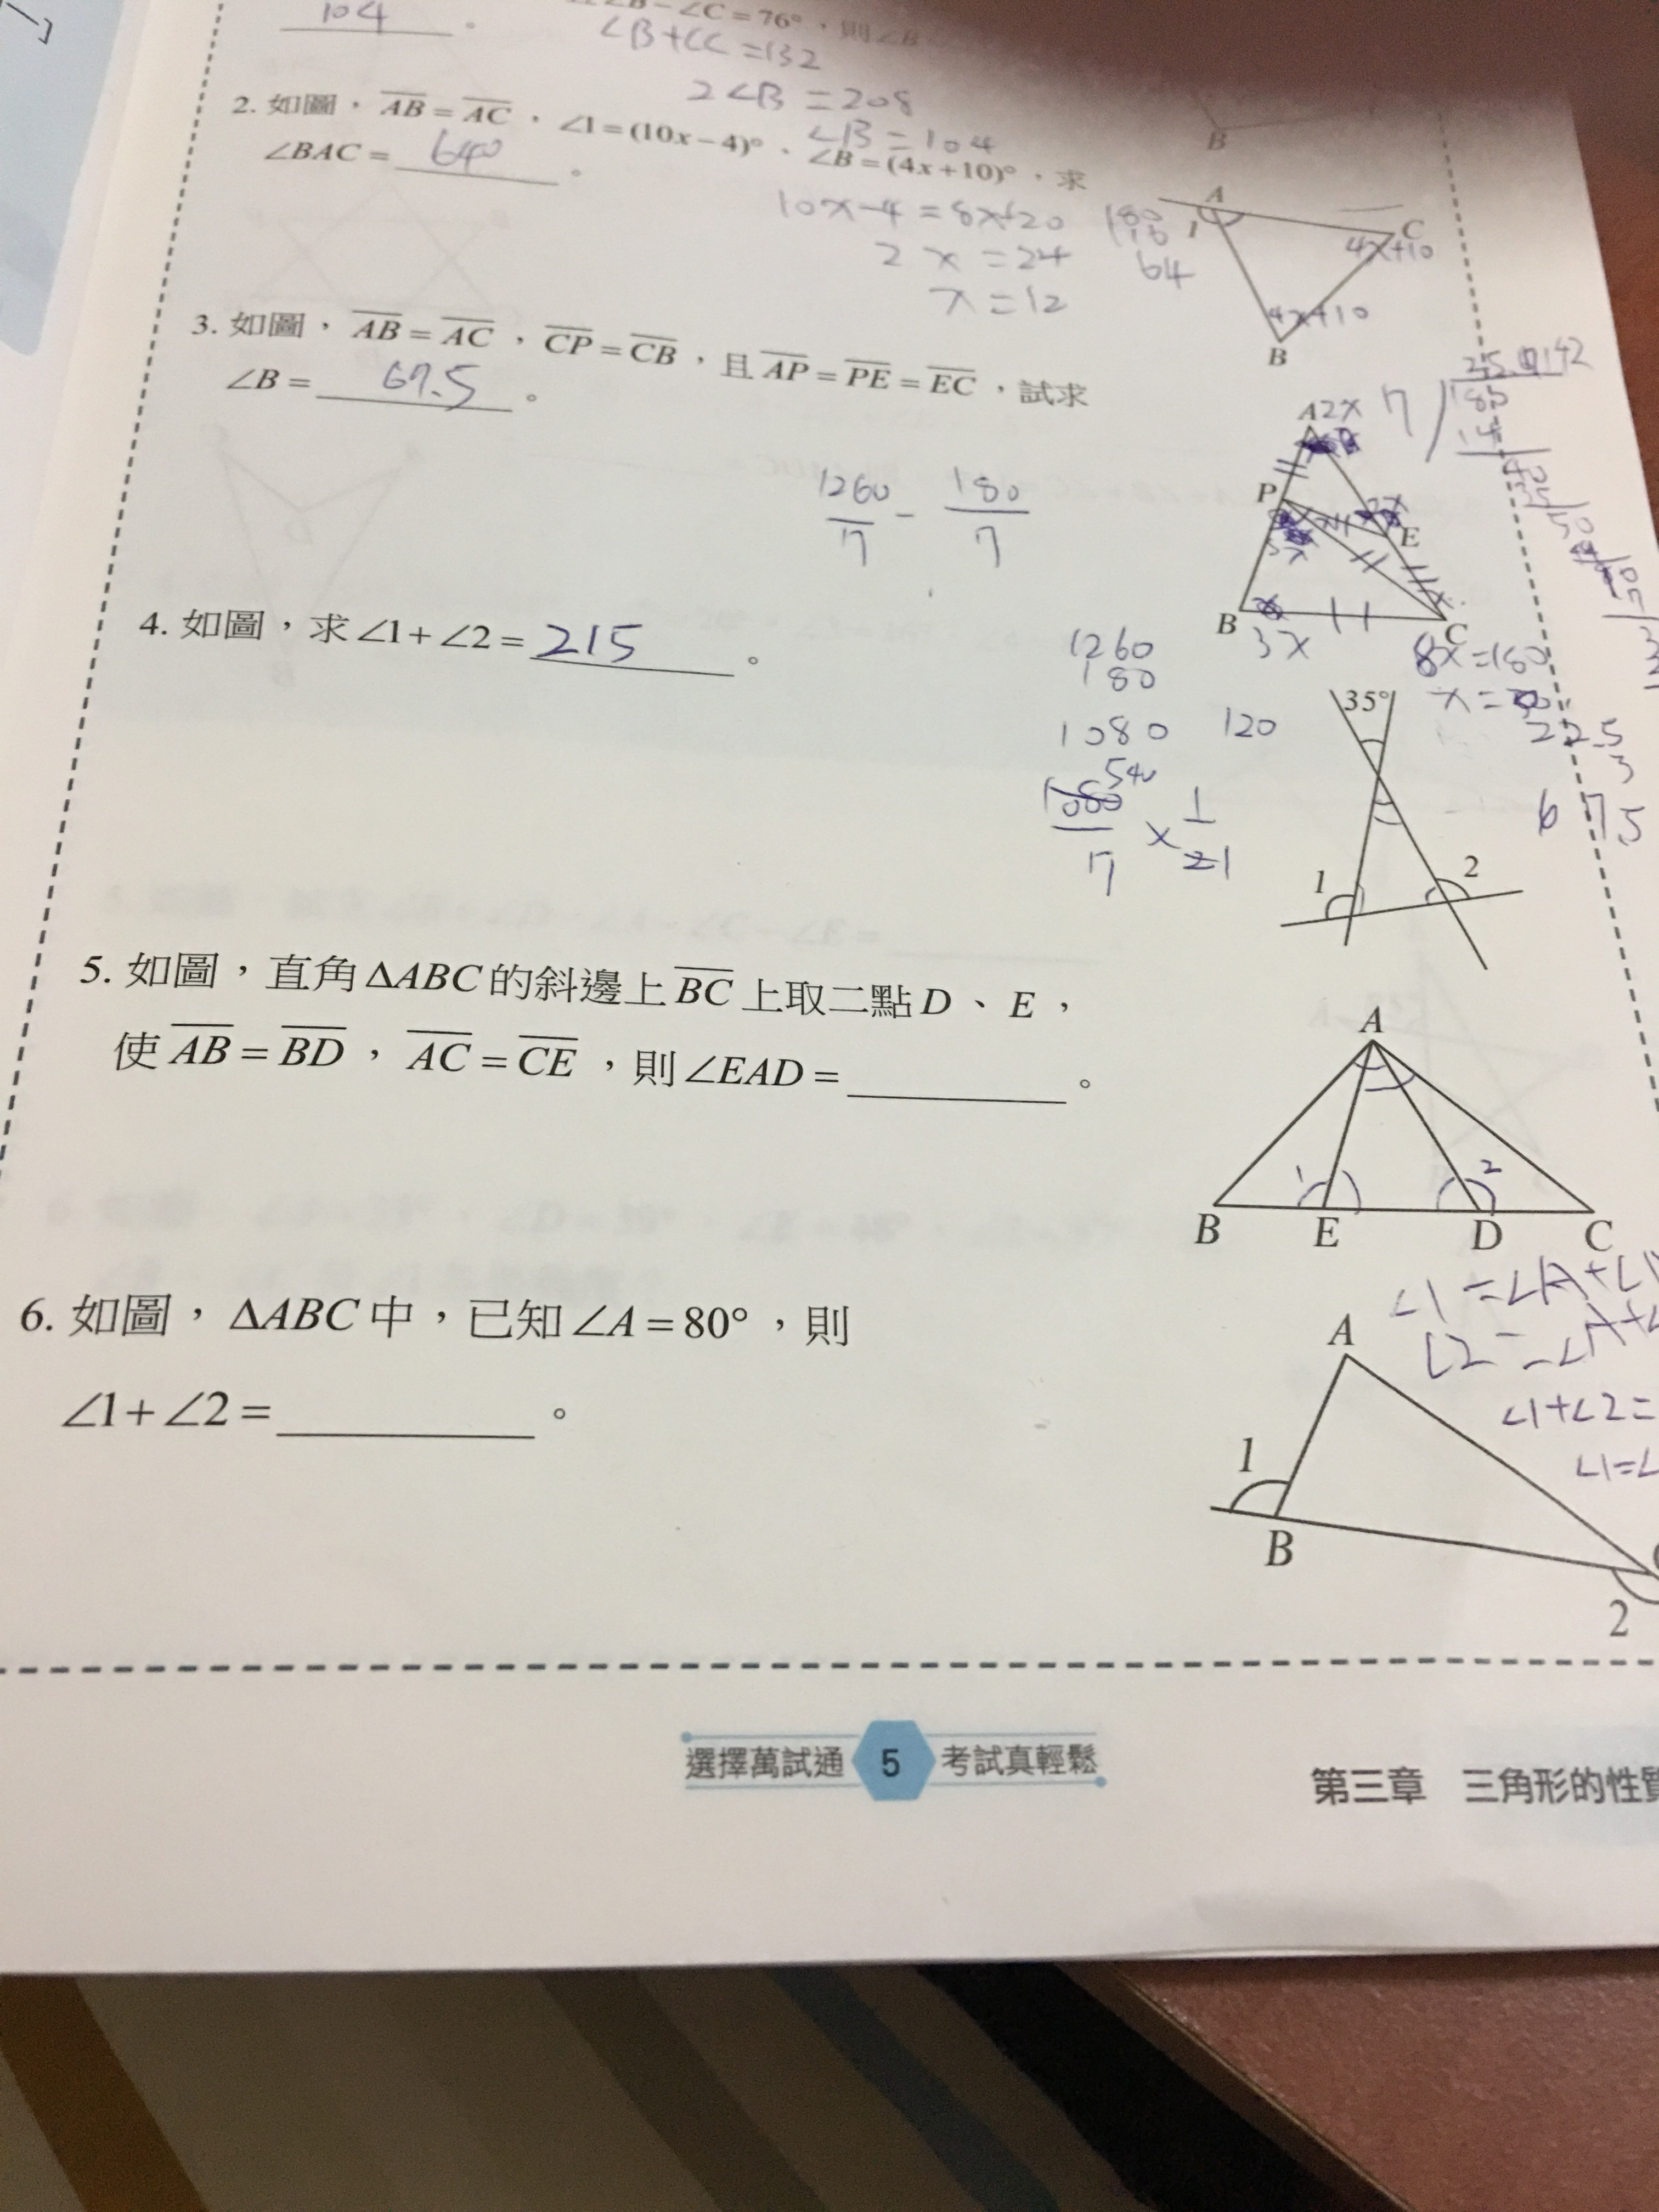 ∠C = 76°，則∠B
104 。
∠B+∠C=132
2∠B=208
∠B=104
2. 如圖，AB = AC，∠1 = (10x−4)°、∠B = (4x+10)°，求
∠BAC = 64 。
10x-4=8x+20
2x=24
x=12
180
116
64
B
A
1
C
4x+10
4x+10
B
3. 如圖，AB = AC，CP = CB，且AP = PE = EC，試求
∠B = 67.5 。
1260/7 - 180/7
A 2x
P
E
3x
B
C
3x
8x=180
x=
22.5
3
675
7
180
14
4. 如圖，求∠1+∠2 = 215 。
1260
180
1080 120
540
1080/7 × 1/21
35°
1
2
5. 如圖，直角ΔABC的斜邊上BC上取二點D、E，
使AB = BD，AC = CE，則∠EAD = 。
A
1
2
B E D C
6. 如圖，ΔABC中，已知∠A = 80°，則
∠1+∠2 = 。
∠1=∠A+∠
∠2=∠A+∠
∠1+∠2=
∠1=∠
A
1
B
2
選擇萬試通 5 考試真輕鬆
第三章 三角形的性質